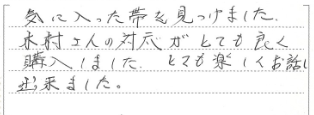 気に入った帯を見つけました.
木村さんの対応がとても良く
購入しました. とても楽しくお話し
出来ました。